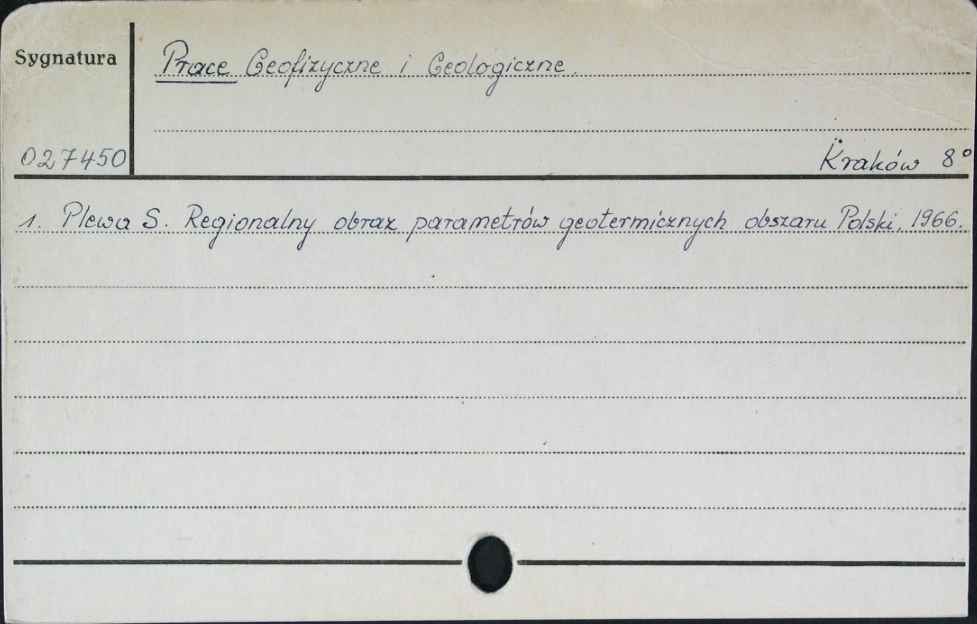 Sygnatura
Prace Geofizyczne i Geologiczne.
027450
Kraków 8°
1. Plewa S. Regionalny obraz parametrów geotermicznych obszaru Polski, 1966.